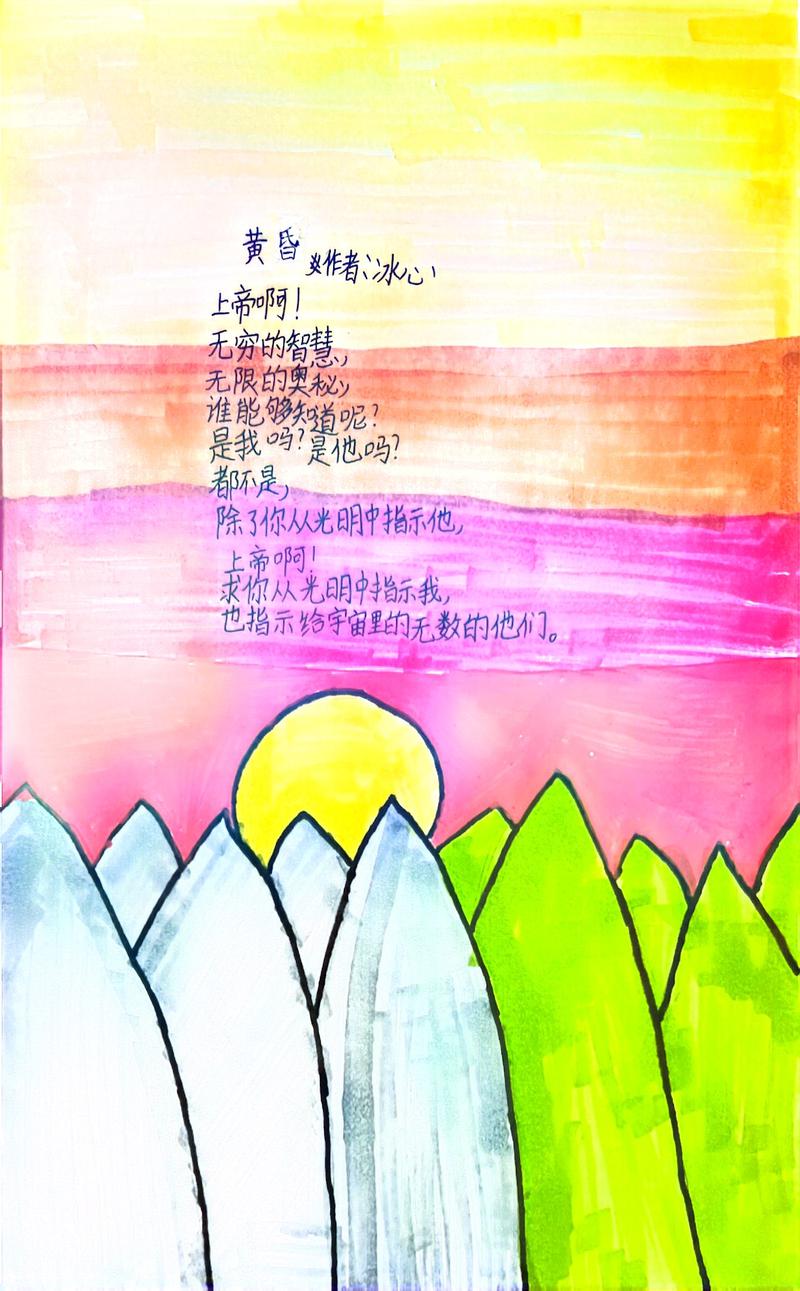 黄昏
作者：冰心
上帝啊！
无穷的智慧，
无限的奥秘，
谁能够知道呢？
是我吗？是他吗？
都不是，
除了你从光明中指示他，
上帝啊！
求你从光明中指示我，
也指示给宇宙里的无数的他们。